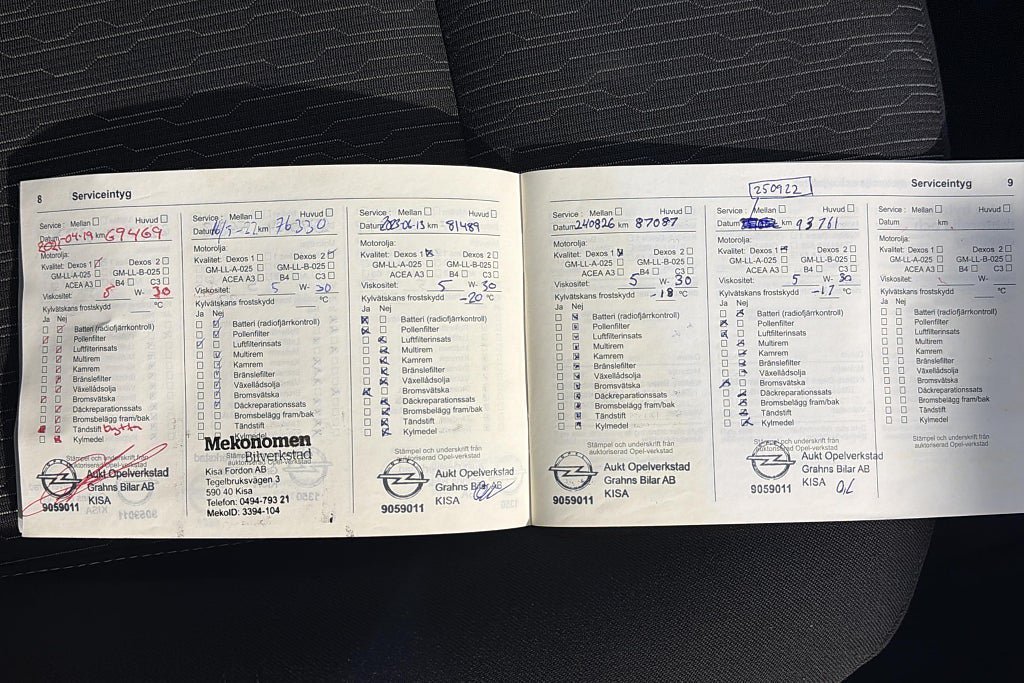 8 Serviceintyg
Service: Mellan Huvud
Datum 2021-04-19 km 69469
Motorolja:
Kvalitet: Dexos 1 Dexos 2
GM-LL-A-025 GM-LL-B-025
ACEA A3 B4 C3
Viskositet: 5 W- 30
Kylvätskans frostskydd °C
Ja Nej
Batteri (radiofjärrkontroll)
Pollenfilter
Luftfilterinsats
Multirem
Kamrem
Bränslefilter
Växellådsolja
Bromsvätska
Däckreparationssats
Bromsbelägg fram/bak
Tändstift bytta
Kylmedel
Stämpel och underskrift från
auktoriserad Opel-verkstad
Aukt Opelverkstad
Grahns Bilar AB
KISA
9059011
Service: Mellan Huvud
Datum 16/5-22 km 76330
Motorolja:
Kvalitet: Dexos 1 Dexos 2
GM-LL-A-025 GM-LL-B-025
ACEA A3 B4 C3
Viskositet: 5 W- 30
Kylvätskans frostskydd °C
Ja Nej
Batteri (radiofjärrkontroll)
Pollenfilter
Luftfilterinsats
Multirem
Kamrem
Bränslefilter
Växellådsolja
Bromsvätska
Däckreparationssats
Bromsbelägg fram/bak
Tändstift
Kylmedel
Mekonomen
Bilverkstad
Kisa Fordon AB
Tegelbruksvägen 3
590 40 Kisa
Telefon: 0494-793 21
MekoID: 3394-104
Service: Mellan Huvud
Datum 2023-06-13 km 81489
Motorolja:
Kvalitet: Dexos 1 Dexos 2
GM-LL-A-025 GM-LL-B-025
ACEA A3 B4 C3
Viskositet: 5 W- 30
Kylvätskans frostskydd -20 °C
Ja Nej
Batteri (radiofjärrkontroll)
Pollenfilter
Luftfilterinsats
Multirem
Kamrem
Bränslefilter
Växellådsolja
Bromsvätska
Däckreparationssats
Bromsbelägg fram/bak
Tändstift
Kylmedel
Stämpel och underskrift från
auktoriserad Opel-verkstad
Aukt Opelverkstad
Grahns Bilar AB
KISA
9059011
Serviceintyg 9
Service: Mellan Huvud
Datum 240826 km 87087
Motorolja:
Kvalitet: Dexos 1 Dexos 2
GM-LL-A-025 GM-LL-B-025
ACEA A3 B4 C3
Viskositet: 5 W- 30
Kylvätskans frostskydd -18 °C
Ja Nej
Batteri (radiofjärrkontroll)
Pollenfilter
Luftfilterinsats
Multirem
Kamrem
Bränslefilter
Växellådsolja
Bromsvätska
Däckreparationssats
Bromsbelägg fram/bak
Tändstift
Kylmedel
Stämpel och underskrift från
auktoriserad Opel-verkstad
Aukt Opelverkstad
Grahns Bilar AB
KISA
9059011
250922
Service: Mellan Huvud
Datum km 93761
Motorolja:
Kvalitet: Dexos 1 Dexos 2
GM-LL-A-025 GM-LL-B-025
ACEA A3 B4 C3
Viskositet: 5 W- 30
Kylvätskans frostskydd -17 °C
Ja Nej
Batteri (radiofjärrkontroll)
Pollenfilter
Luftfilterinsats
Multirem
Kamrem
Bränslefilter
Växellådsolja
Bromsvätska
Däckreparationssats
Bromsbelägg fram/bak
Tändstift
Kylmedel
Stämpel och underskrift från
auktoriserad Opel-verkstad
Aukt Opelverkstad
Grahns Bilar AB
KISA
9059011
Service: Mellan Huvud
Datum km
Motorolja:
Kvalitet: Dexos 1 Dexos 2
GM-LL-A-025 GM-LL-B-025
ACEA A3 B4 C3
Viskositet: W-
Kylvätskans frostskydd °C
Ja Nej
Batteri (radiofjärrkontroll)
Pollenfilter
Luftfilterinsats
Multirem
Kamrem
Bränslefilter
Växellådsolja
Bromsvätska
Däckreparationssats
Bromsbelägg fram/bak
Tändstift
Kylmedel
Stämpel och underskrift från
auktoriserad Opel-verkstad